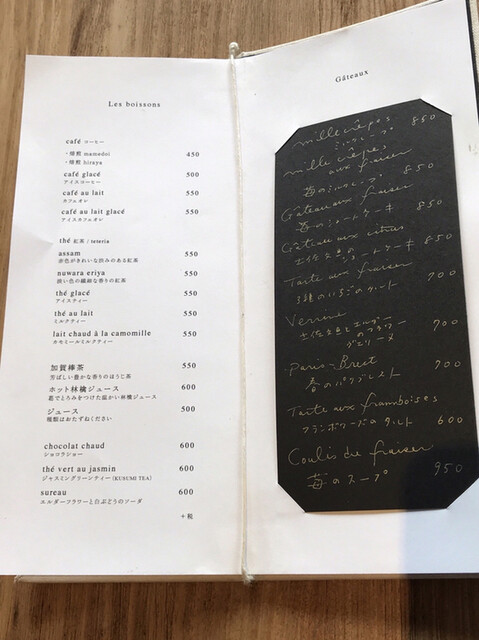 Les boissons
café コーヒー
・焙煎 mamedoi 450
・焙煎 hiraya
café glacé 500
アイスコーヒー
café au lait 550
カフェオレ
café au lait glacé 550
アイスカフェオレ
thé 紅茶 / teteria
assam 550
赤色がきれいな渋みのある紅茶
nuwara eriya 550
淡い色の繊細な香りの紅茶
thé glacé 550
アイスティー
thé au lait 550
ミルクティー
lait chaud à la camomille 550
カモミールミルクティー
加賀棒茶 550
芳ばしい豊かな香りのほうじ茶
ホット林檎ジュース 600
葛でとろみをつけた温かい林檎ジュース
ジュース 500
種類はおたずねください
chocolat chaud 600
ショコラショー
thé vert au jasmin 600
ジャスミングリーンティー(KUSUMI TEA)
sureau 600
エルダーフラワーと白ぶどうのソーダ
+税
Gâteaux
mille crêpes 850
ミルクレープ
mille crêpes
aux fraiser
苺のミルクレープ 850
Gâteau aux fraiser
苺のショートケーキ 850
Gâteau aux citrus
土佐文旦のショートケーキ 850
Tarte aux fraiser
3種のいちごのタルト 700
Verrine
土佐文旦とエルダーフラワー
ヴェリーヌ 700
Paris-Brest
春のパリブレスト 700
Tarte aux framboises
フランボワーズのタルト 600
Couli du fraiser
苺のスープ 950